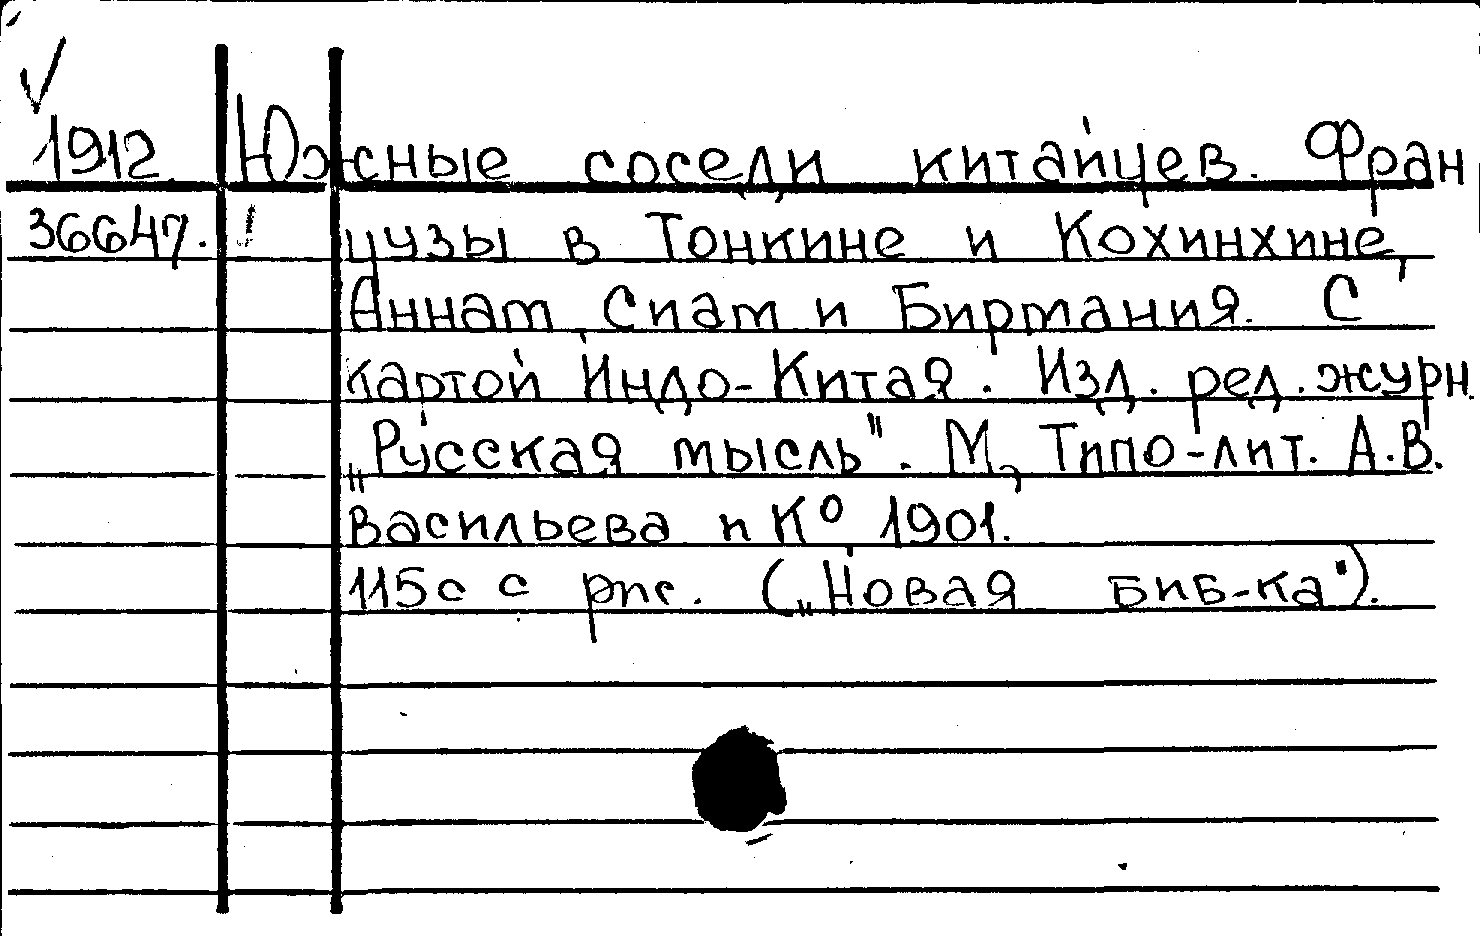 1912. Южные соседи китайцев. Фран
36647. ! цузы в Тонкине и Кохинхине,
Аннам, Сиам и Бирмания. С
картой Индо-Китая. Изд. ред. журн.
„Русская мысль". М, Типо-лит. А.В.
Васильева и К⁰ 1901.
115с с рис. („Новая биб-ка").